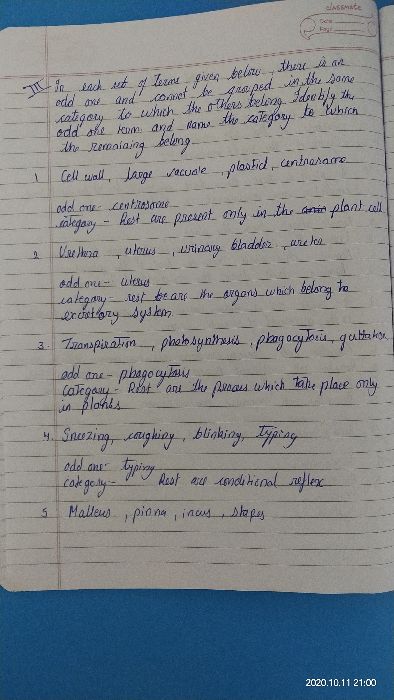 classmate
Date
Page
III In each set of Terms, given below, there is an
odd one and cannot be grouped in the same
category to which the others belong. Identify the
odd one term and name the category to which
the remaining belong.
1. Cell wall, large vacuole, plastid, centrosome
odd one- centrosome
category - Rest are present only in the plant cell
2. Urethra, uterus, urinary bladder, ureter
odd one- uterus
category- rest are the organs which belong to
excretory system.
3. Transpiration, photosynthesis, phagocytosis, guttation
odd one - phagocytosis
Category- Rest are the process which take place only
in plants
4. Sneezing, coughing, blinking, Typing
odd one- typing
category- Rest are conditional reflex
5. Malleus, pinna, incus, stapes
2020.10.11 21:00